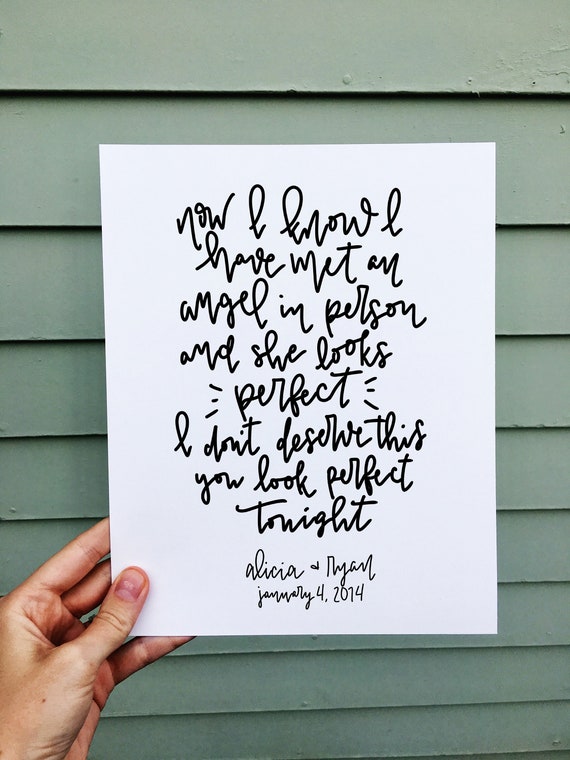 now I know I
have met an
angel in person
and she looks
perfect
I don't deserve this
you look perfect
tonight
alicia + ryan
january 4, 2014